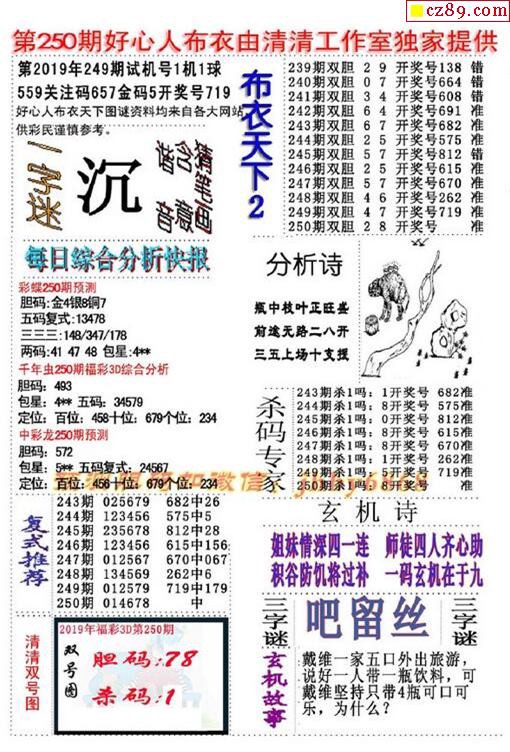 cz89.com
第250期好心人布衣由清清工作室独家提供
第2019年249期试机号1机1球
559关注码657金码5开奖号719
好心人布衣天下图谜资料均来自各大网站
供彩民谨慎参考。
一字谜
沉
猜笔画
含意
谐音
每日综合分析快报
彩蝶250期预测
胆码:金4银8铜7
五码复式:13478
三三三:148/347/178
两码:41 47 48 包星:4**
千年虫250期福彩3D综合分析
胆码: 493
包星: 4** 五码: 34579
定位: 百位: 458十位: 679个位: 234
中彩龙250期预测
胆码: 572
包星: 5** 五码复式: 24567
定位: 百位: 456十位: 679个位: 234
复式推荐
243期 025679 682中26
244期 123456 575中5
245期 235678 812中28
246期 123456 615中156
247期 012567 670中067
248期 134569 262中6
249期 012579 719中179
250期 014678 中
清清双号图
2019年福彩3D第250期
双号图
胆码:78
杀码:1
布衣天下2
239期双胆 2 9 开奖号138 错
240期双胆 0 7 开奖号664 错
241期双胆 3 4 开奖号608 错
242期双胆 6 4 开奖号691 准
243期双胆 6 7 开奖号682 准
244期双胆 2 5 开奖号575 准
245期双胆 5 7 开奖号812 错
246期双胆 2 5 开奖号615 准
247期双胆 5 7 开奖号670 准
248期双胆 4 6 开奖号262 准
249期双胆 4 7 开奖号719 准
250期双胆 2 8 开奖号 准
分析诗
瓶中枝叶正旺盛
前途无路二八开
三五上场十支援
杀码专家
243期杀1吗: 1开奖号 682准
244期杀1吗: 8开奖号 575准
245期杀1吗: 0开奖号 812准
246期杀1吗: 8开奖号 615准
247期杀1吗: 8开奖号 670准
248期杀1吗: 3开奖号 262准
249期杀1吗: 5开奖号 719准
250期杀1吗: 5开奖号 准
玄机诗
姐妹情深四一连 师徒四人齐心助
积谷防饥将过补 一码玄机在于九
三字谜
吧留丝
三字谜
玄机故事
戴维一家五口外出旅游,
说好一人带一瓶饮料, 可
戴维坚持只带4瓶可口可
乐, 为什么?